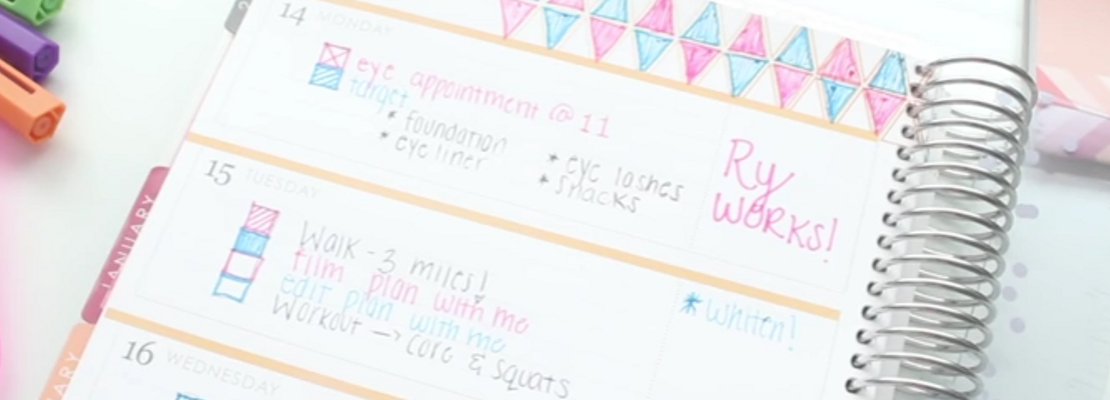 14 MONDAY
eye appointment @ 11
target
* foundation
* eye liner
* eye lashes
* snacks
Ry
WORKS!
15 TUESDAY
Walk - 3 miles!
film plan with me
edit plan with me
Workout → core & squats
* whiten!
JANUARY
16 WEDNESDAY
ARY